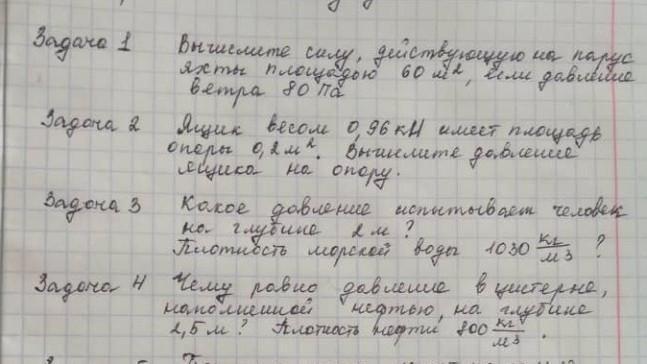 Задача 1 Вычислите силу, действующую на парус
яхты площадью 60 м², если давление
ветра 80 Па
Задача 2 Ящик весом 0,96 кН имеет площадь
опоры 0,2 м². Вычислите давление
ящика на опору.
Задача 3 Какое давление испытывает человек
на глубине 2 м?
Плотность морской воды 1030 кг/м3 ?
Задача 4 Чему равно давление в цистерне,
наполненной нефтью, на глубине
2,5 м? Плотность нефти 800 кг/м3 .